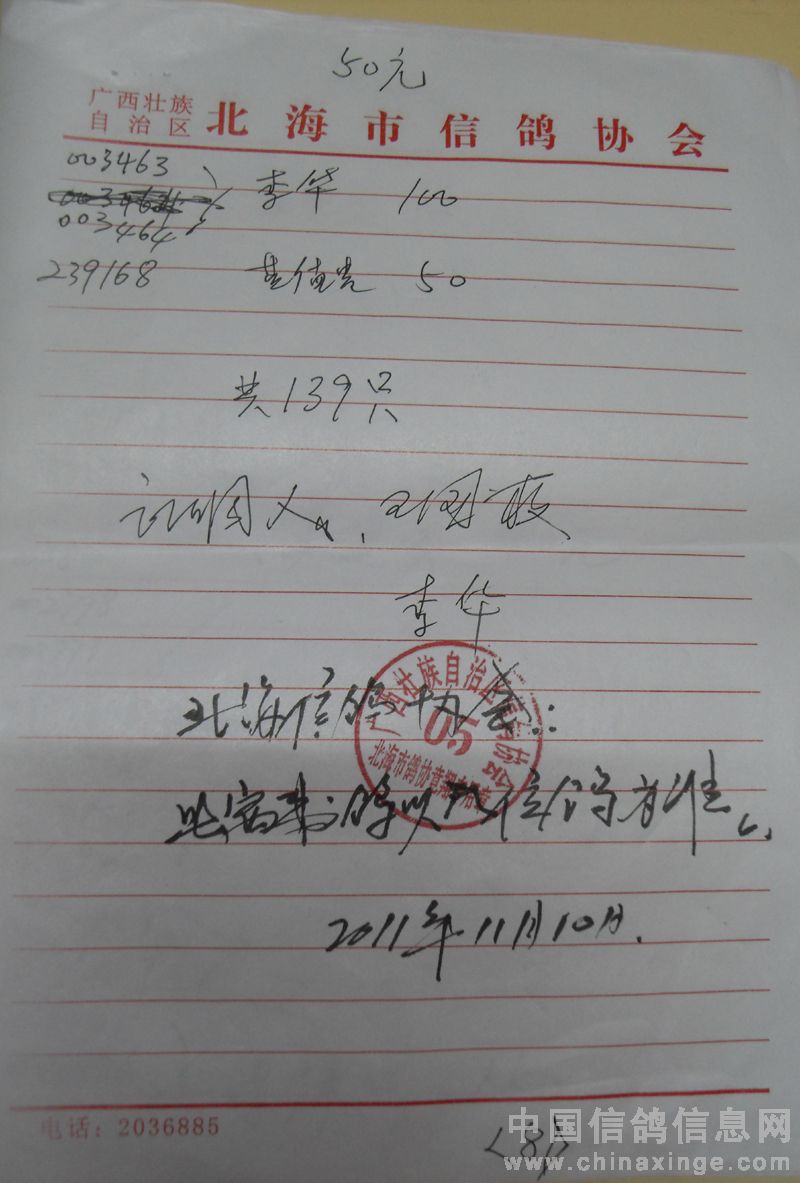 50元
广西壮族
自治区 北海市信鸽协会
003463
003464
李华 100
239168 50
共139只
证明人: 王国
李华
北海信鸽协会:
广西壮族自治区
05
北海市鸽协
信鸽为准。
2011年11月10日.
电话: 2036885
中国信鸽信息网
www.chinaxinge.com